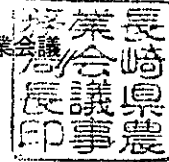 長崎県農
業会議事
務局長印
業会議